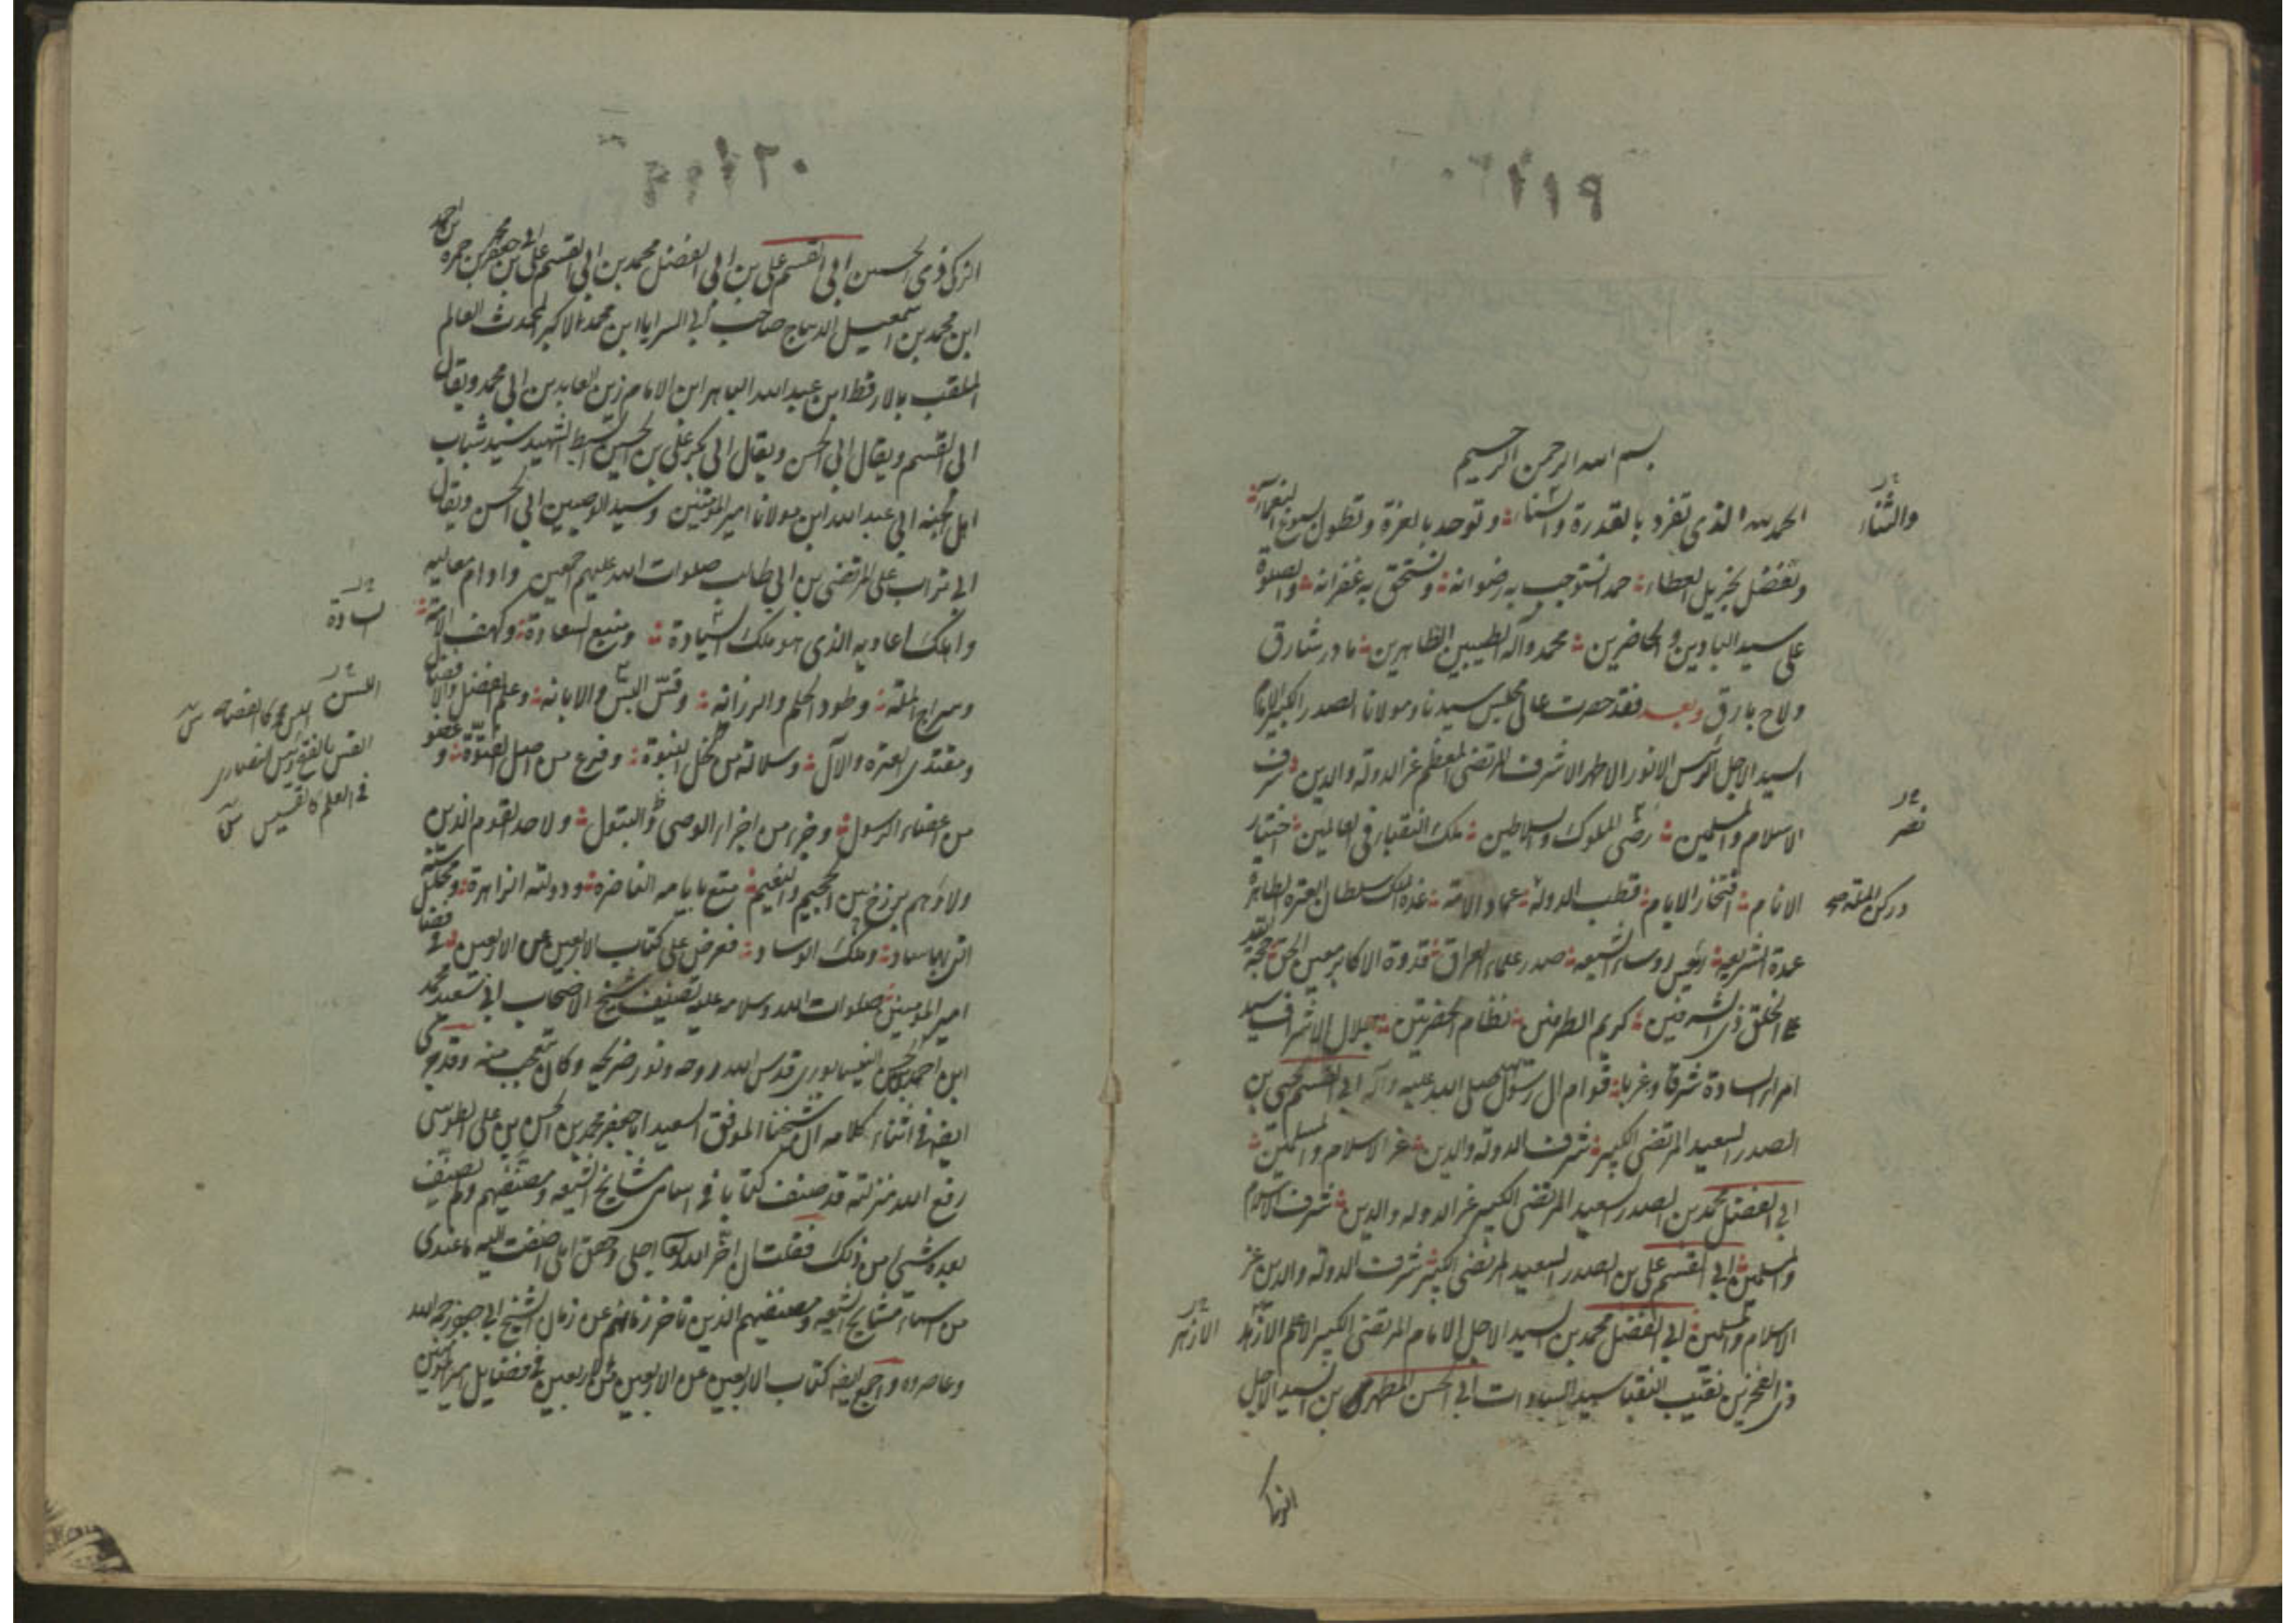 ١١٩
بسم الله الرحمن الرحيم
الحمد لله الذي تفرد بالقدرة والسناء وتوحد بالعزة وتطول بسبوغ النعماء
والثناء
وتفضل بجزيل العطاء حمدا نستوجب به رضوانه ونستحق به غفرانه والصلوة
على سيد البادين والحاضرين محمد وآله الطيبين الطاهرين ما ذر شارق
ولاح بارق وبعد فقد حضرت عالي مجلس سيدنا ومولانا الصدر الكبير الامام
السيد الاجل الرئيس الانور الاطهر الاشرف المرتضى المعظم عز الدولة والدين شرف
الاسلام والمسلمين رضى الملوك والسلاطين ملك النقباء في العالمين اختيار
نصر
الانام افتخار الايام قطب الدولة عماد الامة عدة الملك سلطان العترة الطاهرة
وركن الملة صح
عمدة الشريعة رئيس رؤساء الشيعة صدر علماء العراق قدوة الاكابر معين الحق حجة الله
على الخلق ذي الشرفين كريم الطرفين نظام الحضرتين جلال الاشراف سيد
امراء السادة شرقا وغربا قوام ال رسول الله صلى الله عليه وآله ابي القسم يحيى بن
الصدر السعيد المرتضى الكبير شرف الدولة والدين عز الاسلام والمسلمين
ابي الفضل محمد بن الصدر السعيد المرتضى الكبير عز الدولة والدين شرف الاسلام
والمسلمين ابي القسم علي بن الصدر السعيد المرتضى الكبير شرف الدولة والدين عز
الاسلام والمسلمين ابي الفضل محمد بن السيد الاجل الامام المرتضى الكبير الاعلم الازهد
الازهر
ذي الفخرين نقيب النقباء سيد السادات ابي الحسن المطهر بن السيد الاجل
الزكي
١٢٠
الزكي ذي الحسبين ابي القسم علي بن ابي الفضل محمد بن ابي القسم علي بن ابي جعفر محمد بن حمزة بن احمد
ابن محمد بن اسمعيل الديباج صاحب ابي السرايا ابن محمد الاكبر المحدث العالم
الملقب بالارقط ابن عبد الله الباهر ابن الامام زين العابدين ابي محمد ويقال
ابي القسم ويقال ابي الحسن ويقال ابي بكر علي بن الحسين السبط الشهيد سيد شباب
اهل الجنة ابي عبد الله ابن مولانا امير المؤمنين وسيد الوصيين ابي الحسن ويقال
ابي تراب علي المرتضى بن ابي طالب صلوات الله عليهم اجمعين وادام معاليه
واهلك اعاديه الذي هو ملك السيادة ومنبع السعادة وكهف الامة
السادة
وسراج الملة وطود الحلم والرزانة وقس اللسن والابانة وعلم الفضل والافضال
اللسن
اللسن محركة الفصاحة
القس بالفتح رئيس النصارى
في العلم كالقسيس
ومقتدى العترة والآل وسلالة من نجل النبوة وفرع من اصل الفتوة وعضو
من اعضاء الرسول وجزء من اجزاء الوصي والبتول واحد القوم الذين
ولاؤهم برزخ بين الجحيم والنعيم متع بايامه الناضرة ودولته الزاهرة ومحاسنه
التي بها ساد وملك الوساد فعرض علي كتاب الاربعين عن الاربعين في فضائل
امير المؤمنين صلوات الله وسلامه عليه تصنيف شيخ الاصحاب ابي سعيد محمد
ابن احمد بن الحسين النيسابوري قدس الله روحه ونور ضريحه وكان يتعجب منه وقد جرى
ايضا في اثناء كلامه ان شيخنا الموفق السعيد ابا جعفر محمد بن الحسن بن علي الطوسي
رفع الله منزلته قد صنف كتابا في اسامي مشايخ الشيعة ومصنفيهم ولم يصنف
بعده شئ من ذلك فقلت ان اخر الله اجلي وحقق املي اضفت اليه ما عندي
من اسماء مشايخ الشيعة ومصنفيهم الذين تاخر زمانهم عن زمان الشيخ ابي جعفر رحمه الله
وعاصروه واجمع ايضا كتاب الاربعين عن الاربعين من الاربعين في فضايل امير المؤمنين